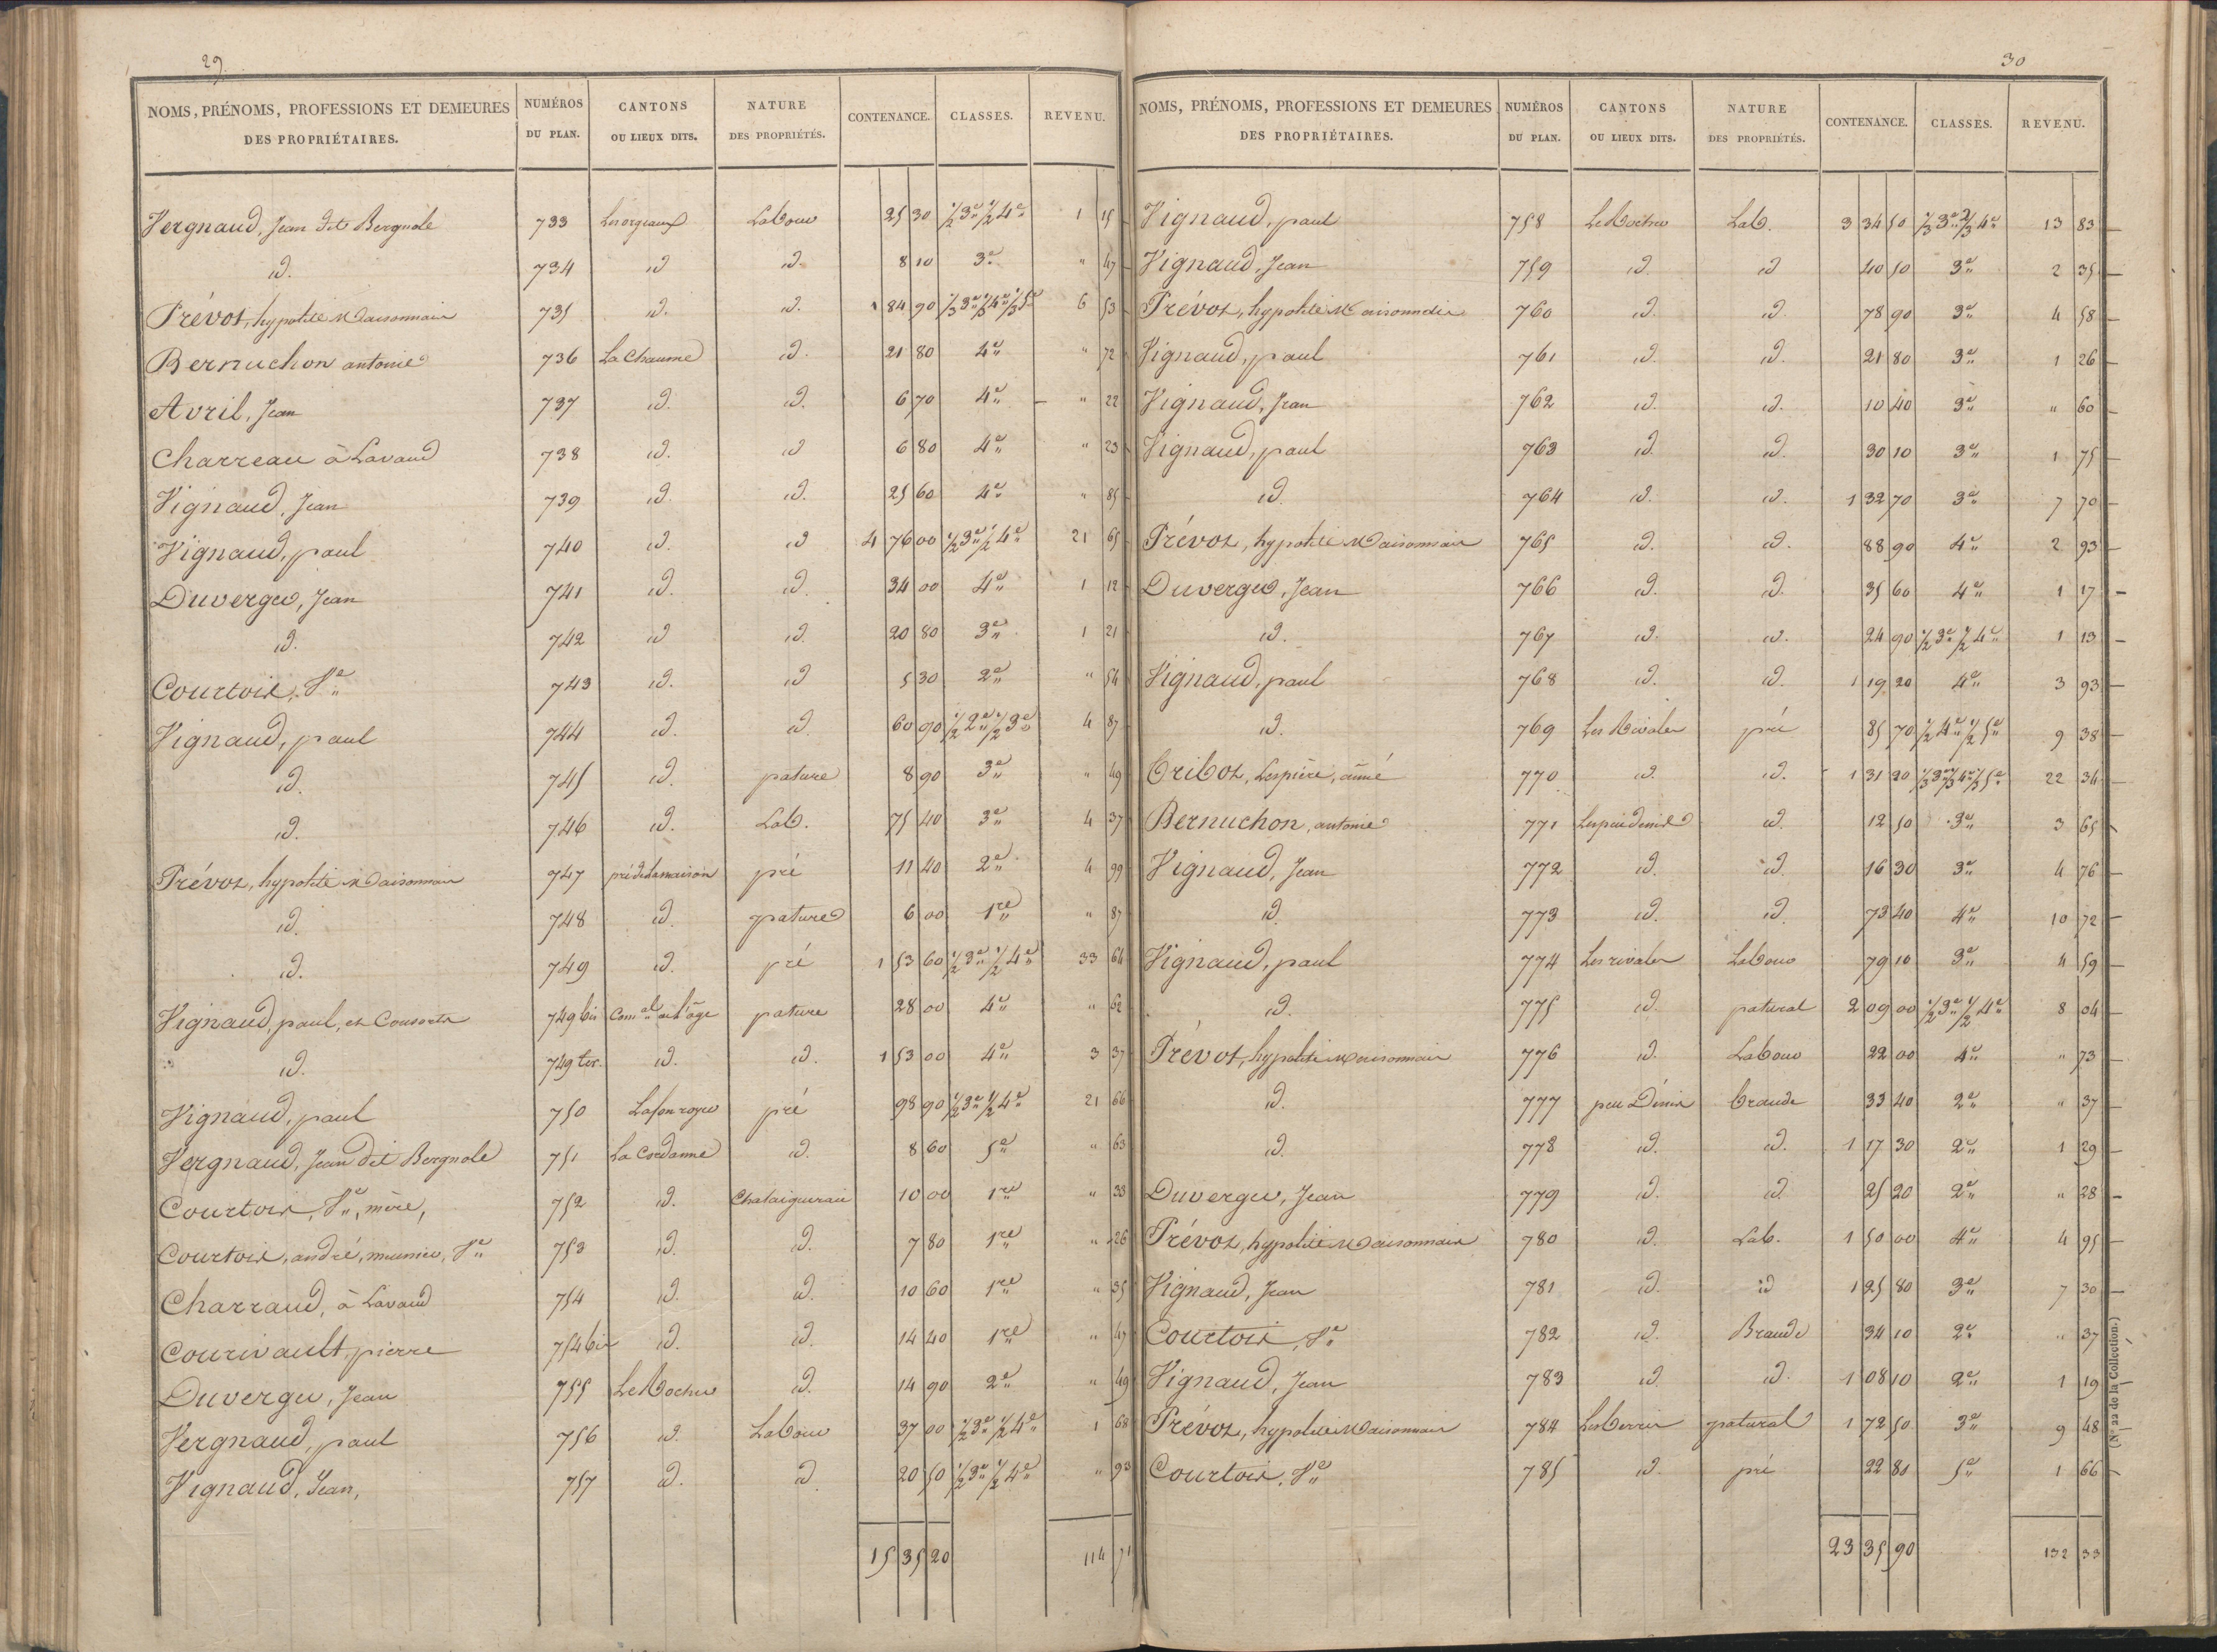 29.
NOMS, PRÉNOMS, PROFESSIONS ET DEMEURES DES PROPRIÉTAIRES. NUMÉROS DU PLAN. CANTONS OU LIEUX DITS. NATURE DES PROPRIÉTÉS. CONTENANCE. CLASSES. REVENU.
Vergnaud, Jean dit Bergnole 733 Les orgeaux Labour 25 30 1/2 3e 1/2 4e 1 15
id. 734 id id. 8 10 3e " 47
Prévot, hypolite Maisonnais 735 id. id. 1 84 90 1/3 3e 1/3 4e 1/3 5e 6 53
Bernuchon antoine 736 La Chaume id. 21 80 4e " 72
Avril, Jean 737 id. id. 6 70 4e " 22
Charreau à Lavaud 738 id. id 6 80 4e " 23
Vignaud, Jean 739 id. id. 25 60 4e " 85
Vignaud, paul 740 id. id 4 76 00 1/2 3e 1/2 4e 21 65
Duverger, Jean 741 id. id. 34 00 4e 1 12
id. 742 id id. 20 80 3e 1 21
Courtois, Ve 743 id. id 5 30 2e " 54
Vignaud, paul 744 id. id. 60 90 1/2 2e 1/2 3e 4 87
id. 745 id. pature 8 90 3e " 49
id. 746 id. Lab. 75 40 3e 4 37
Prévot, hypolite Maisonnais 747 pré de la maison pré 11 40 2e 4 99
id. 748 id. pature 6 00 1re " 87
id. 749 id. pré 1 53 60 1/2 3e 1/2 4e 33 64
Vignaud, paul, et Consorts 749 bis Comal de l'âge pature 28 00 4e " 62
id. 749 ter. id. id. 1 53 00 4e 3 37
Vignaud, paul 750 Lafon royer pré 98 90 1/2 3e 1/2 4e 21 66
Vergnaud, Jean dit Bergnole 751 La Cordanne id. 8 60 5e " 63
Courtois, Ve, mère, 752 id. Chataigneraie 10 00 1re " 33
Courtois, andré, meunier, Ve 753 id. id. 7 80 1re " 26
Charraud, à Lavaud 754 id. id. 10 60 1re " 35
Courivault, pierre 754 bis id. id. 14 40 1re " 47
Duverger, Jean 755 Le Rocher id. 14 90 2e " 49
Vergnaud, paul 756 id. Labour 37 00 1/2 3e 1/2 4e 1 68
Vignaud, Jean, 757 id. id. 20 50 1/2 3e 1/2 4e " 93
15 35 20 114 71
30
NOMS, PRÉNOMS, PROFESSIONS ET DEMEURES DES PROPRIÉTAIRES. NUMÉROS DU PLAN. CANTONS OU LIEUX DITS. NATURE DES PROPRIÉTÉS. CONTENANCE. CLASSES. REVENU.
Vignaud, paul 758 Le Rocher Lab. 3 34 50 1/3 3e 2/3 4e 13 83
Vignaud, Jean 759 id. id 40 50 3e 2 35
Prévot, hypolite Maisonnais 760 id. id. 78 90 3e 4 58
Vignaud, paul 761 id. id. 21 80 3e 1 26
Vignaud, Jean 762 id. id. 10 40 3e " 60
Vignaud, paul 763 id. id. 30 10 3e 1 75
id. 764 id. id. 1 32 70 3e 7 70
Prévot, hypolite Maisonnais 765 id. id. 88 90 4e 2 93
Duverger, Jean 766 id. id. 35 60 4e 1 17
id. 767 id. id. 24 90 1/2 3e 1/2 4e 1 13
Vignaud, paul 768 id. id. 1 19 20 4e 3 93
id. 769 Les Rivales pré 85 70 1/2 4e 1/2 5e 9 38
Tribot, Lespière, aîné 770 id. id. 1 31 20 1/3 3e 1/3 4e 1/3 5e 22 34
Bernuchon, antoine 771 id. 12 50 3e 3 65
Vignaud, Jean 772 id. id. 16 30 3e 4 76
id. 773 id. id. 73 40 4e 10 72
Vignaud, paul 774 Les rivales Labour 79 10 3e 4 59
id. 775 id. patural 2 09 00 1/2 3e 1/2 4e 8 04
Prévot, hypolite Maisonnais 776 id. Labour 22 00 4e " 73
id. 777 peu Denis brande 33 40 2e " 37
id. 778 id. id. 1 17 30 2e 1 29
Duverger, Jean 779 id. id. 25 20 2e " 28
Prévot, hypolite Maisonnais 780 id. Lab. 1 50 00 4e 4 95
Vignaud, Jean 781 id. id 1 25 80 3e 7 30
Courtois, Ve 782 id. Brande 34 10 2e " 37
Vignaud, Jean 783 id. id. 1 08 10 2e 1 19
Prévot, hypolite Maisonnais 784 patural 1 72 50 3e 9 48
Courtois, Ve 785 id. pré 22 80 5e 1 66
23 35 90 132 33
(N° 22 de la Collection.)